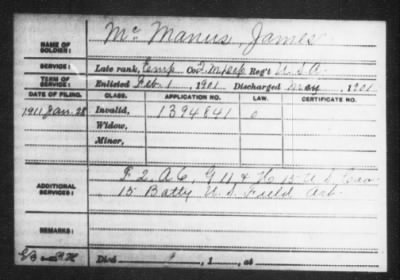 NAME OF SOLDIER: Mc Manus, James
SERVICE: Late rank, Co. Reg't U.S.A.
TERM OF SERVICE: Enlisted Feb. 1, 1901 Discharged May, 1901
DATE OF FILING. CLASS. APPLICATION NO. LAW. CERTIFICATE NO.
1911 Jan. 28 Invalid, 1394841 0
Widow,
Minor,
ADDITIONAL SERVICES: & H 15 U.S. Cav
15 Batty U.S. Field Art.
REMARKS:
Died , 1 , at